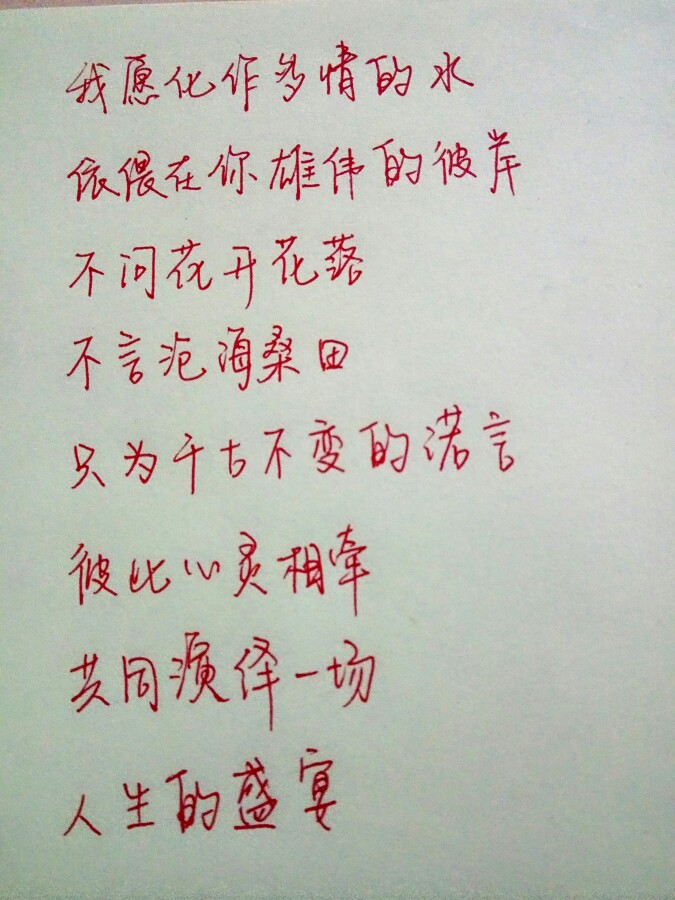 我愿化作多情的水
依偎在你雄伟的彼岸
不问花开花落
不言沧海桑田
只为千古不变的诺言
彼此心灵相牵
共同演绎一场
人生的盛宴